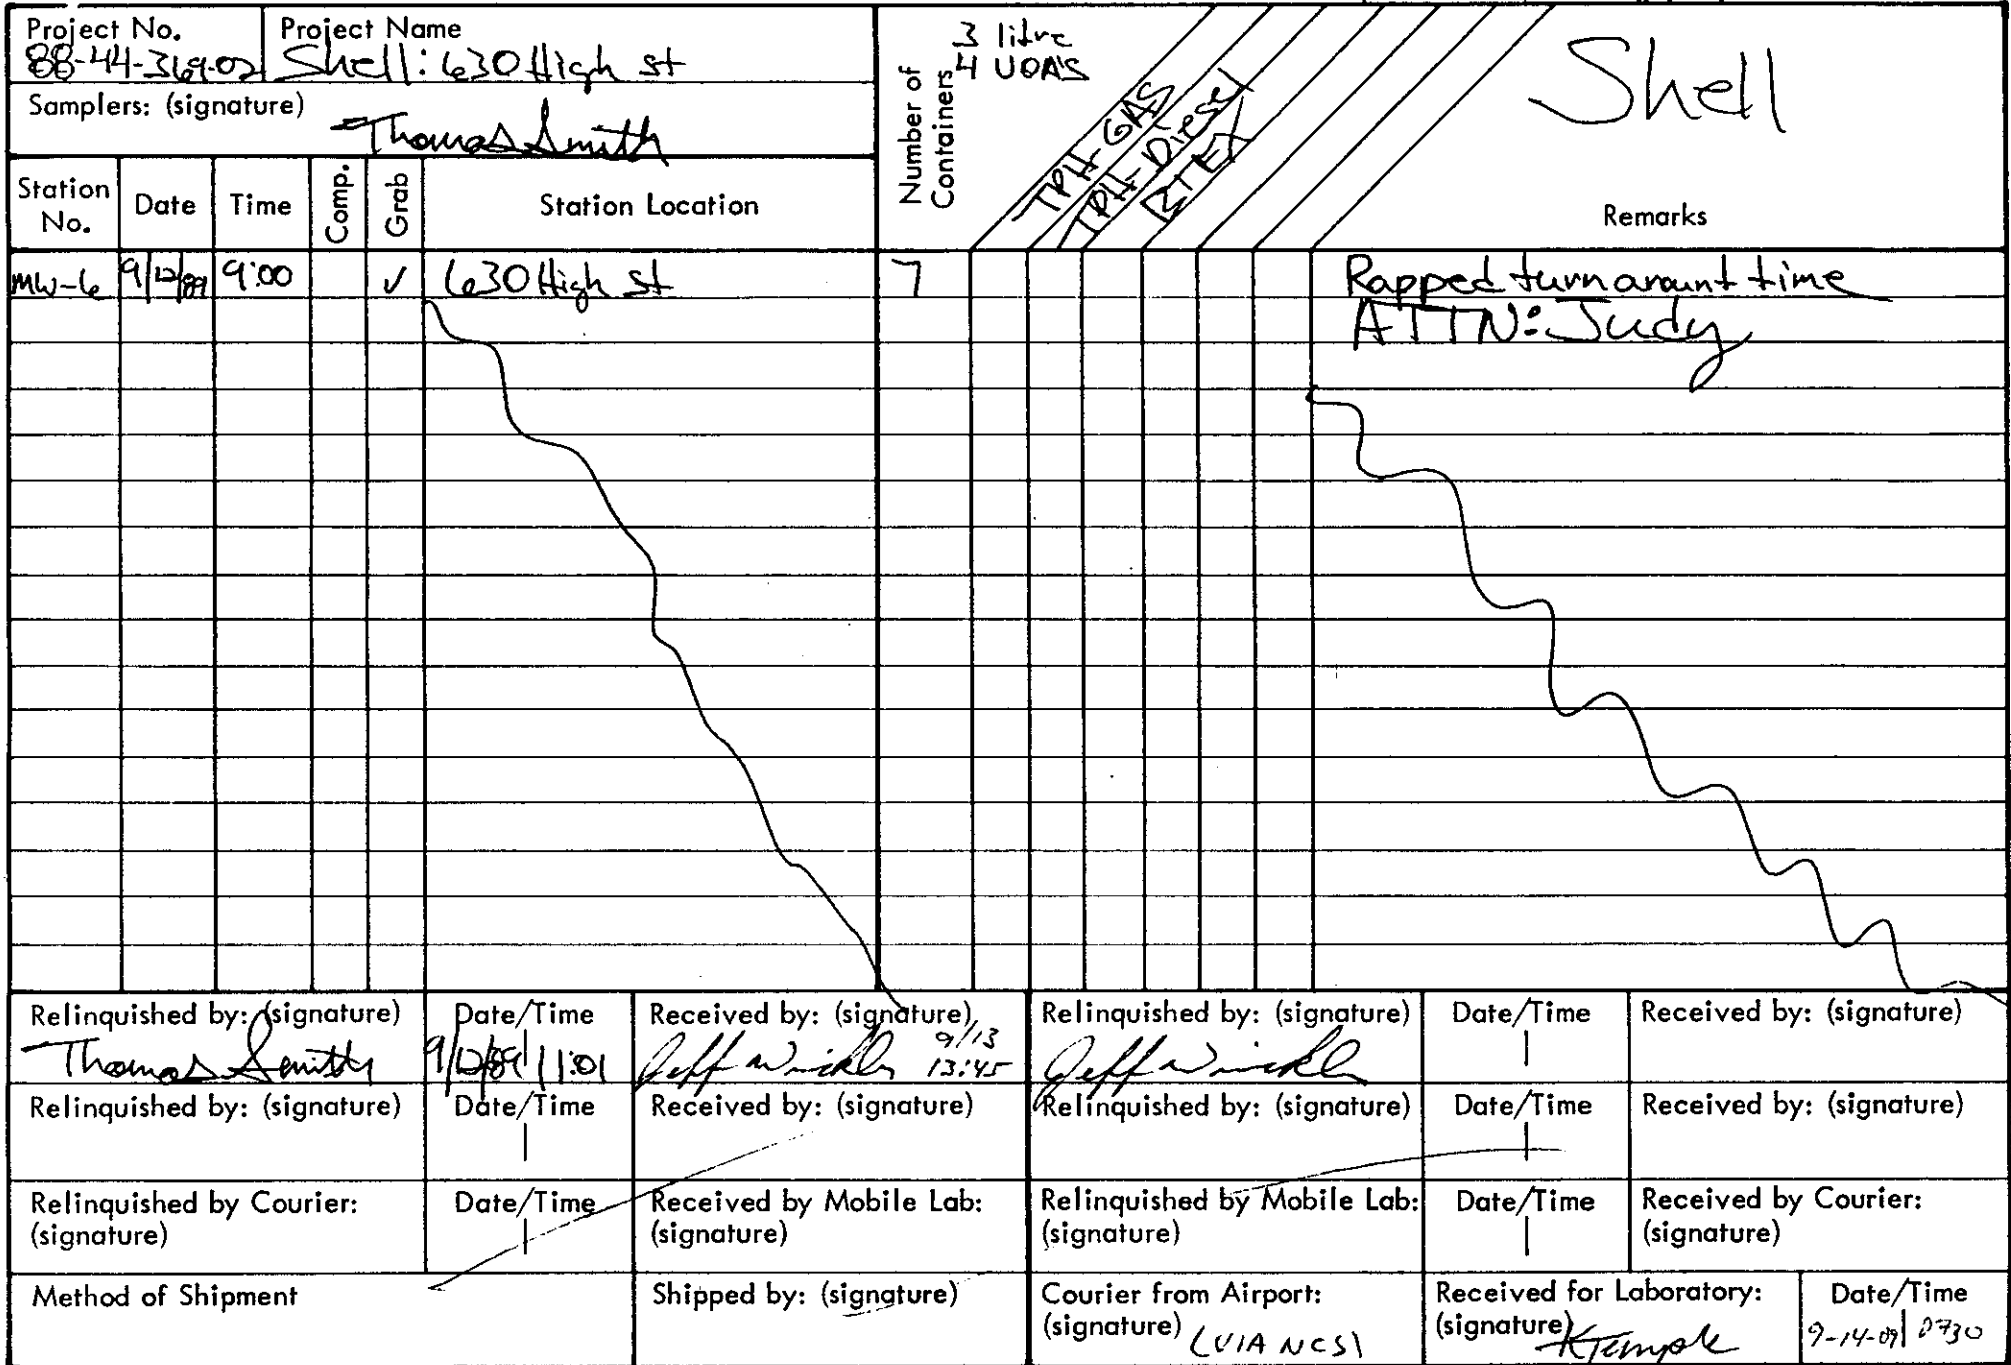 Project No.
88-44-369-02
Project Name
Shell: 630 High st
Samplers: (signature)
Thomas Smith
Number of
Containers
3 litre
4 VOA'S
TPH-GAS
TPH-Diesel
BTEX
Shell
Remarks
Station
No.
Date
Time
Comp.
Grab
Station Location
MW-6 9/12/89 9:00 ✓ 630 High st 7 Rapped turn arount time
ATTN: Judy
Relinquished by: (signature)
Thomas Smith
Date/Time
9/12/89 11:01
Received by: (signature)
Jeff Winkler 9/13
13:45
Relinquished by: (signature)
Jeff Winkler
Date/Time
Received by: (signature)
Relinquished by: (signature)
Date/Time
Received by: (signature)
Relinquished by: (signature)
Date/Time
Received by: (signature)
Relinquished by Courier:
(signature)
Date/Time
Received by Mobile Lab:
(signature)
Relinquished by Mobile Lab:
(signature)
Date/Time
Received by Courier:
(signature)
Method of Shipment
Shipped by: (signature)
Courier from Airport:
(signature) (VIA NCS)
Received for Laboratory:
(signature) KTemple
Date/Time
9-14-89 0730